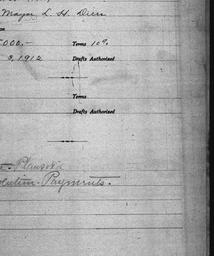 Mayor L. H. Dier
000.- Terms 10%
3, 1912 Drafts Authorized
Terms
Drafts Authorized
olution-Payments.